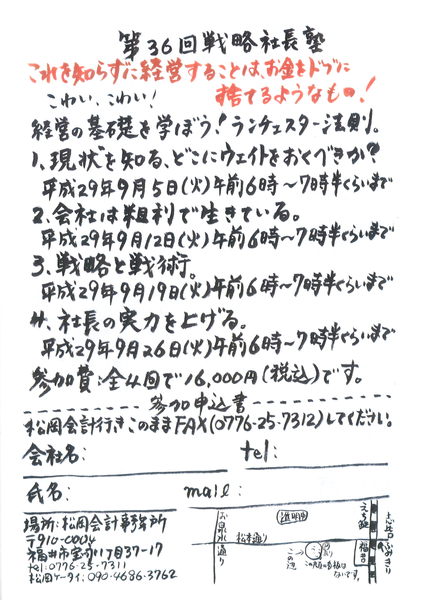 第36回戦略社長塾
これを知らずに経営することは、お金をドブに
捨てるようなもの!
こわい、こわい!
経営の基礎を学ぼう!ランチェスター法則。
1、現状を知る、どこにウェイトをおくべきか?
平成29年9月5日(火)午前6時～7時半くらいまで
2、会社は粗利で生きている。
平成29年9月12日(火)午前6時～7時半くらいまで
3、戦略と戦術。
平成29年9月19日(火)午前6時～7時半くらいまで
4、社長の実力を上げる。
平成29年9月26日(火)午前6時～7時半くらいまで
参加費:全4回で16,000円(税込)です。
参加申込書
松岡会計行きこのままFAX(0776-25-7312)してください。
会社名:
tel:
氏名:
mail:
場所:松岡会計事務所
〒910-0004
福井市宝永4丁目37-17
tel:0776-25-7311
松岡ケータイ:090-4686-3762
お泉水通り
松本通り
この辺
この丸の看板は
ないです。
福井